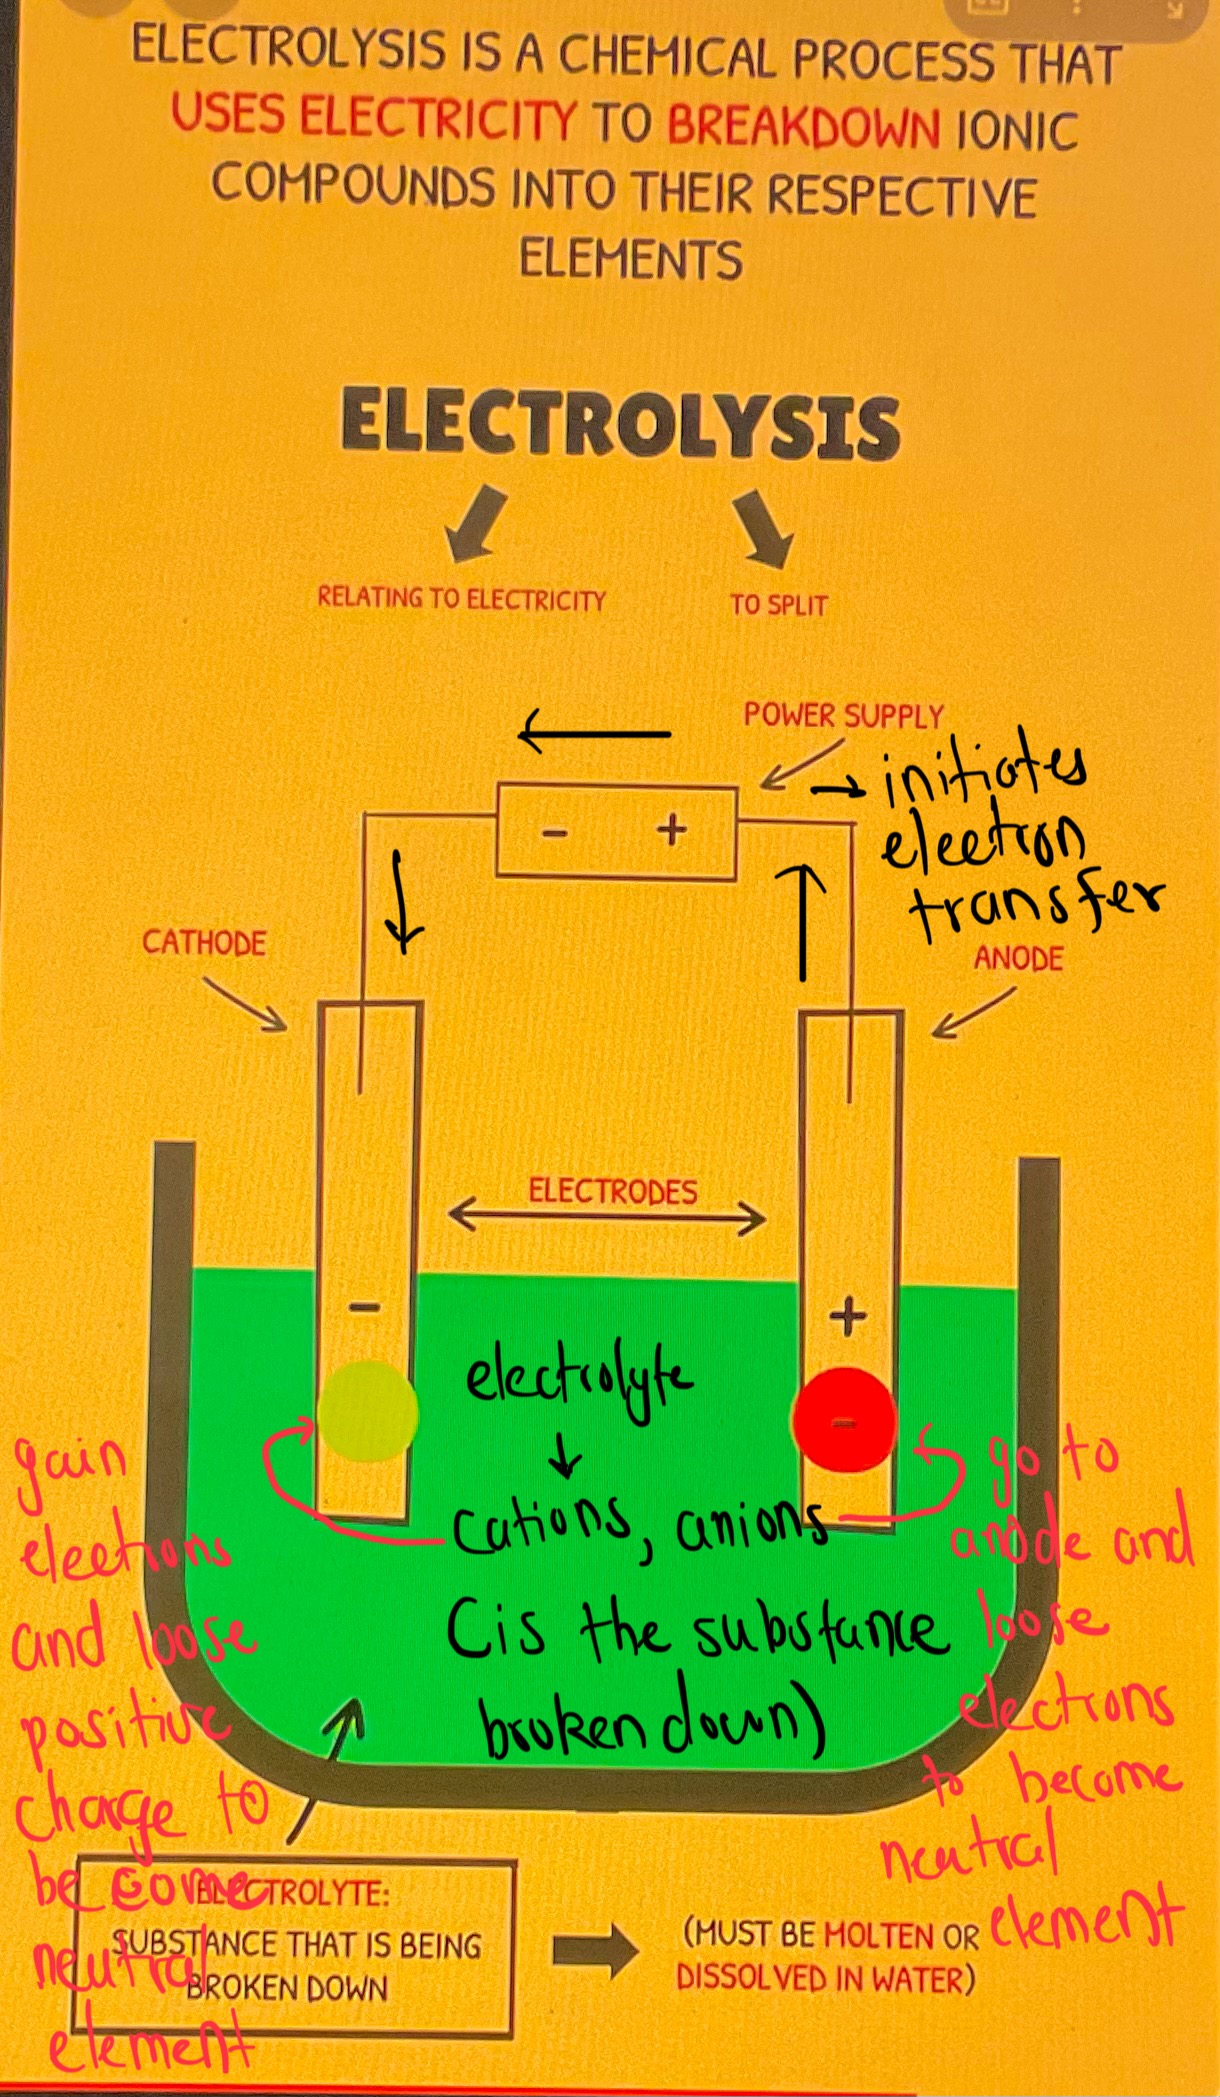 ELECTROLYSIS IS A CHEMICAL PROCESS THAT
USES ELECTRICITY TO BREAKDOWN IONIC
COMPOUNDS INTO THEIR RESPECTIVE
ELEMENTS
ELECTROLYSIS
RELATING TO ELECTRICITY
TO SPLIT
POWER SUPPLY
→ initiates
electron
transfer
- +
CATHODE
ANODE
ELECTRODES
-
+
-
electrolyte
cations, anions
(is the substance
broken down)
gain
electrons
and loose
positive
charge to
become
neutral
element
go to
anode and
loose
electrons
to become
neutral
element
ELECTROLYTE:
SUBSTANCE THAT IS BEING
BROKEN DOWN
(MUST BE MOLTEN OR
DISSOLVED IN WATER)